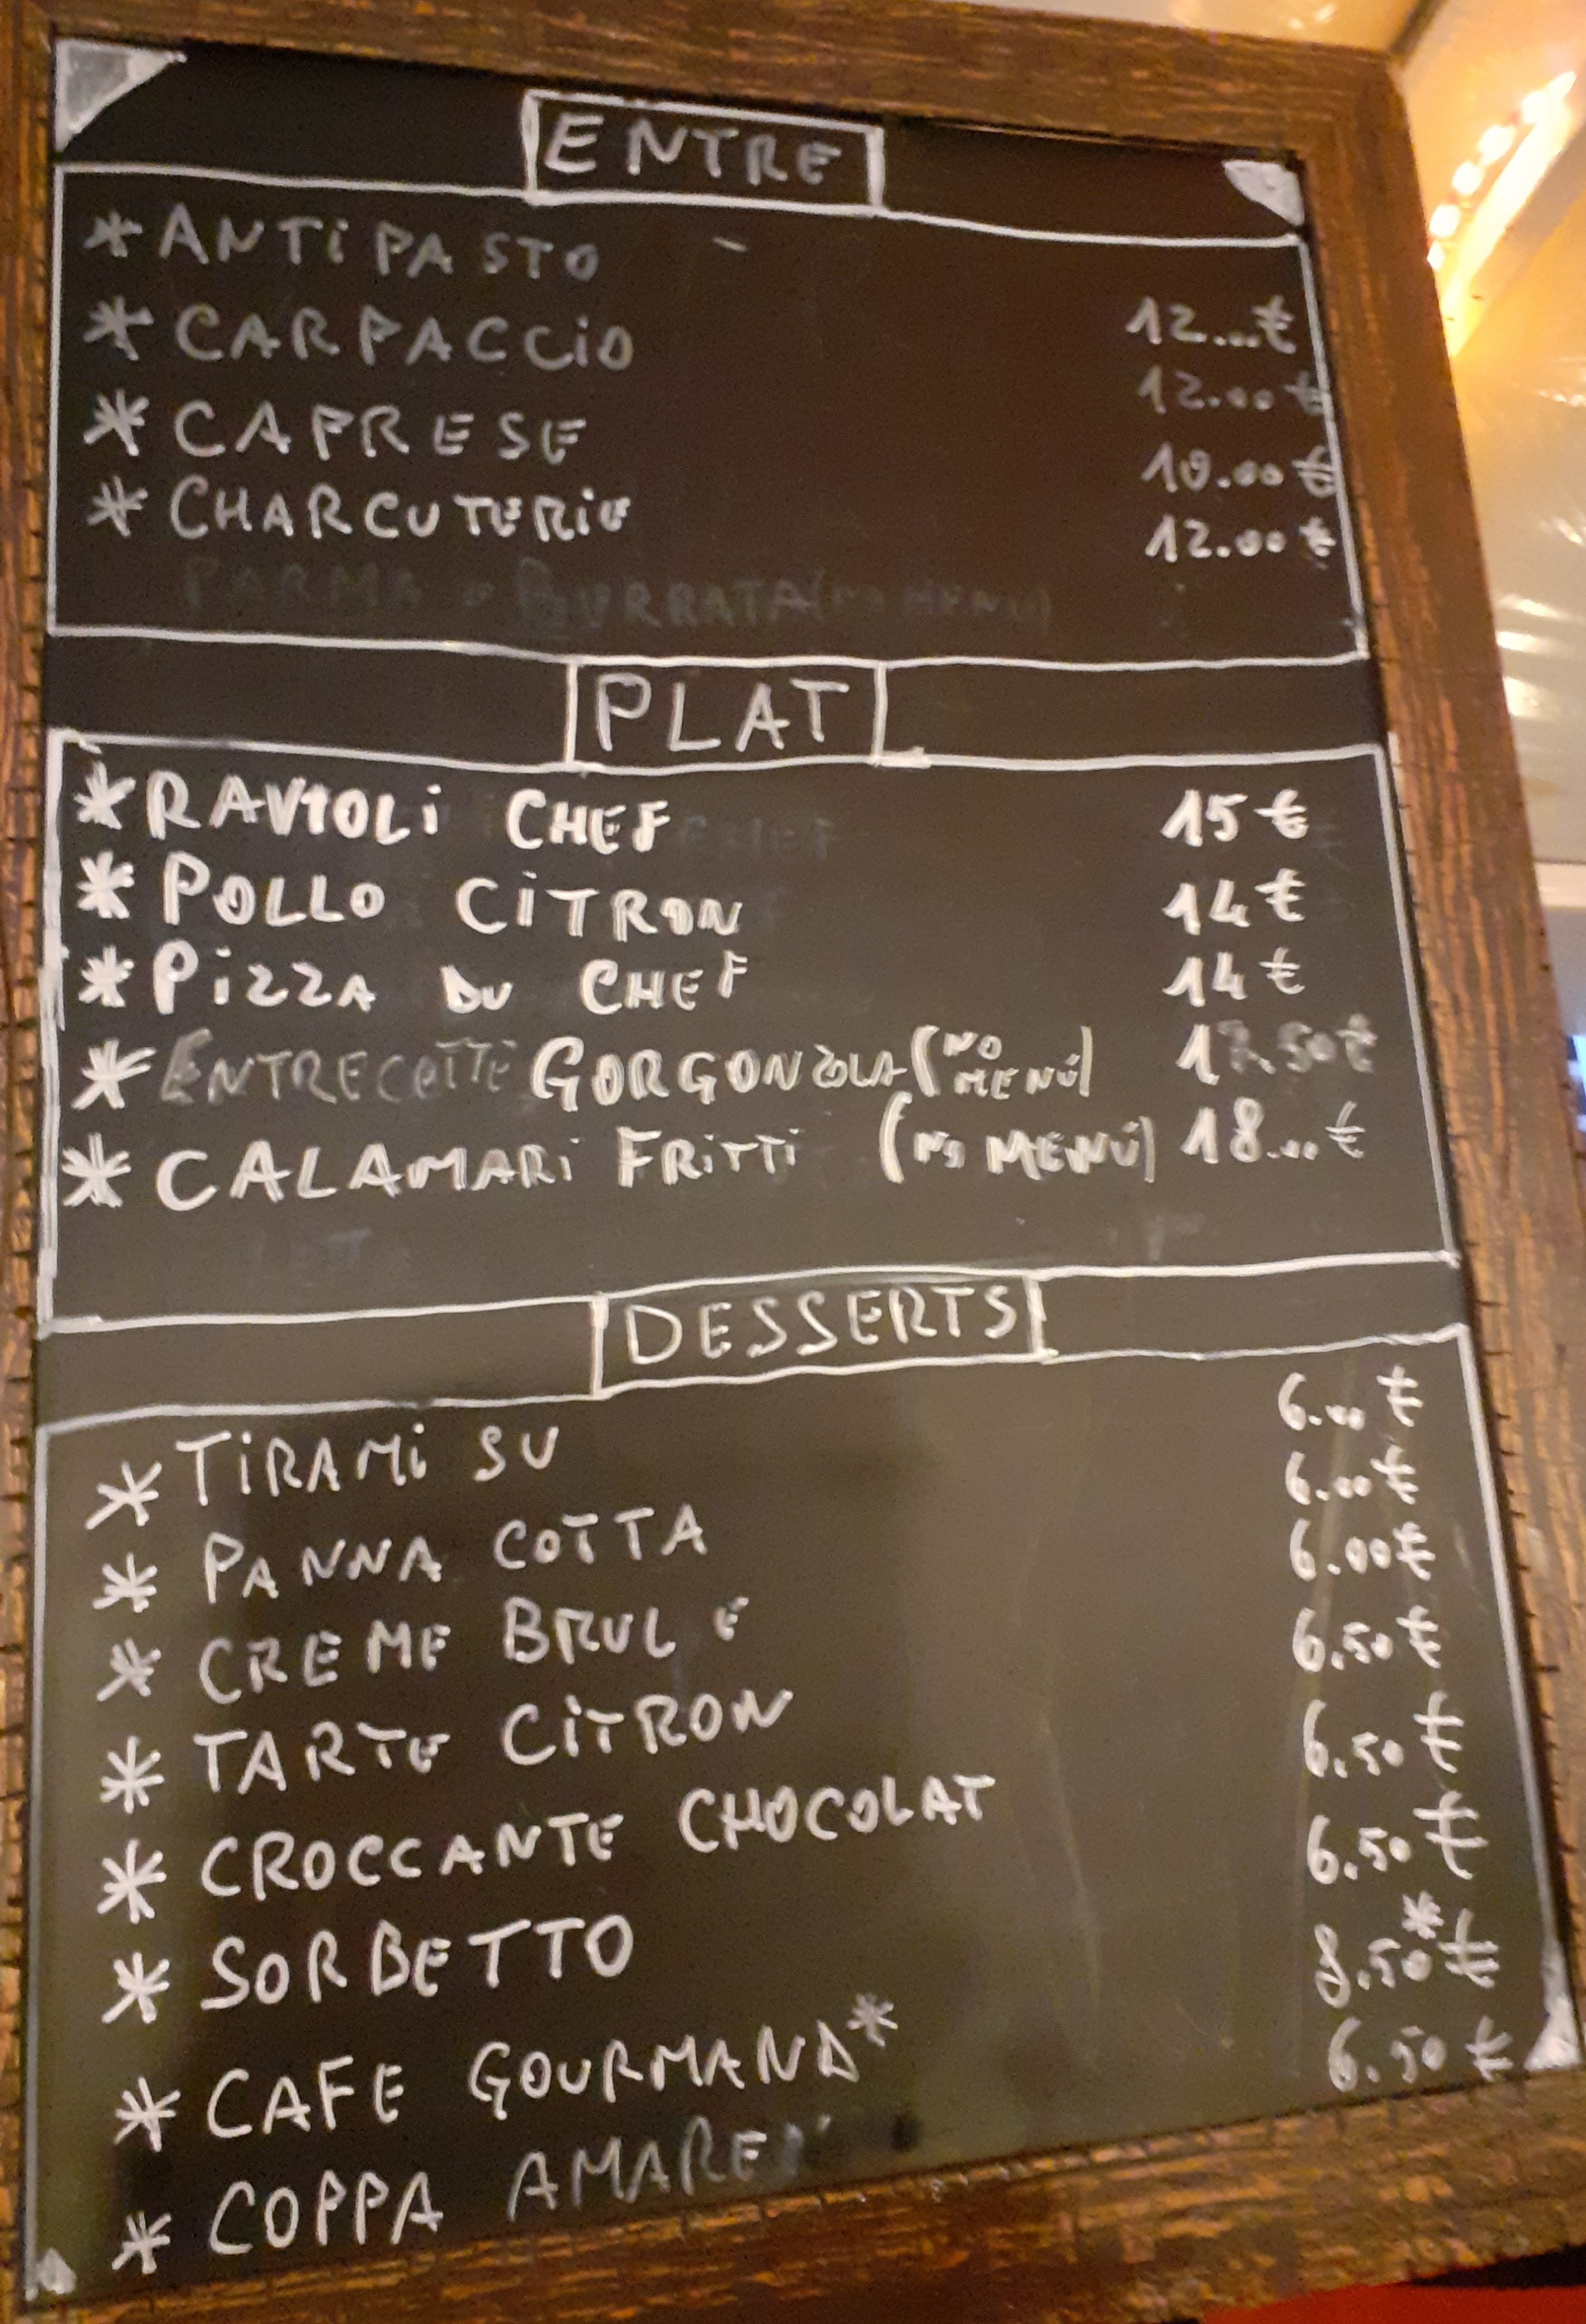 ENTRE
* ANTIPASTO 12...€
* CARPACCIO 12.00 €
* CAPRESE 10.00 €
* CHARCUTERIE 12.00 €
PARMA BURRATA (NO MENÚ)
PLAT
* RAVIOLI CHEF 15 €
* POLLO CITRON 14 €
* PIZZA DU CHEF 14 €
* ENTRECOTTE GORGONZOLA (NO MENÚ) 17.50 €
* CALAMARI FRITTI (NO MENÚ) 18...€
DESSERTS
* TIRAMI SU 6.00 €
* PANNA COTTA 6.00 €
* CREME BRUL E 6.00 €
* TARTE CITRON 6.50 €
* CROCCANTE CHOCOLAT 6.50 €
* SORBETTO 6.50 €
* CAFE GOURMAND* 8.50* €
* COPPA 6.50 €